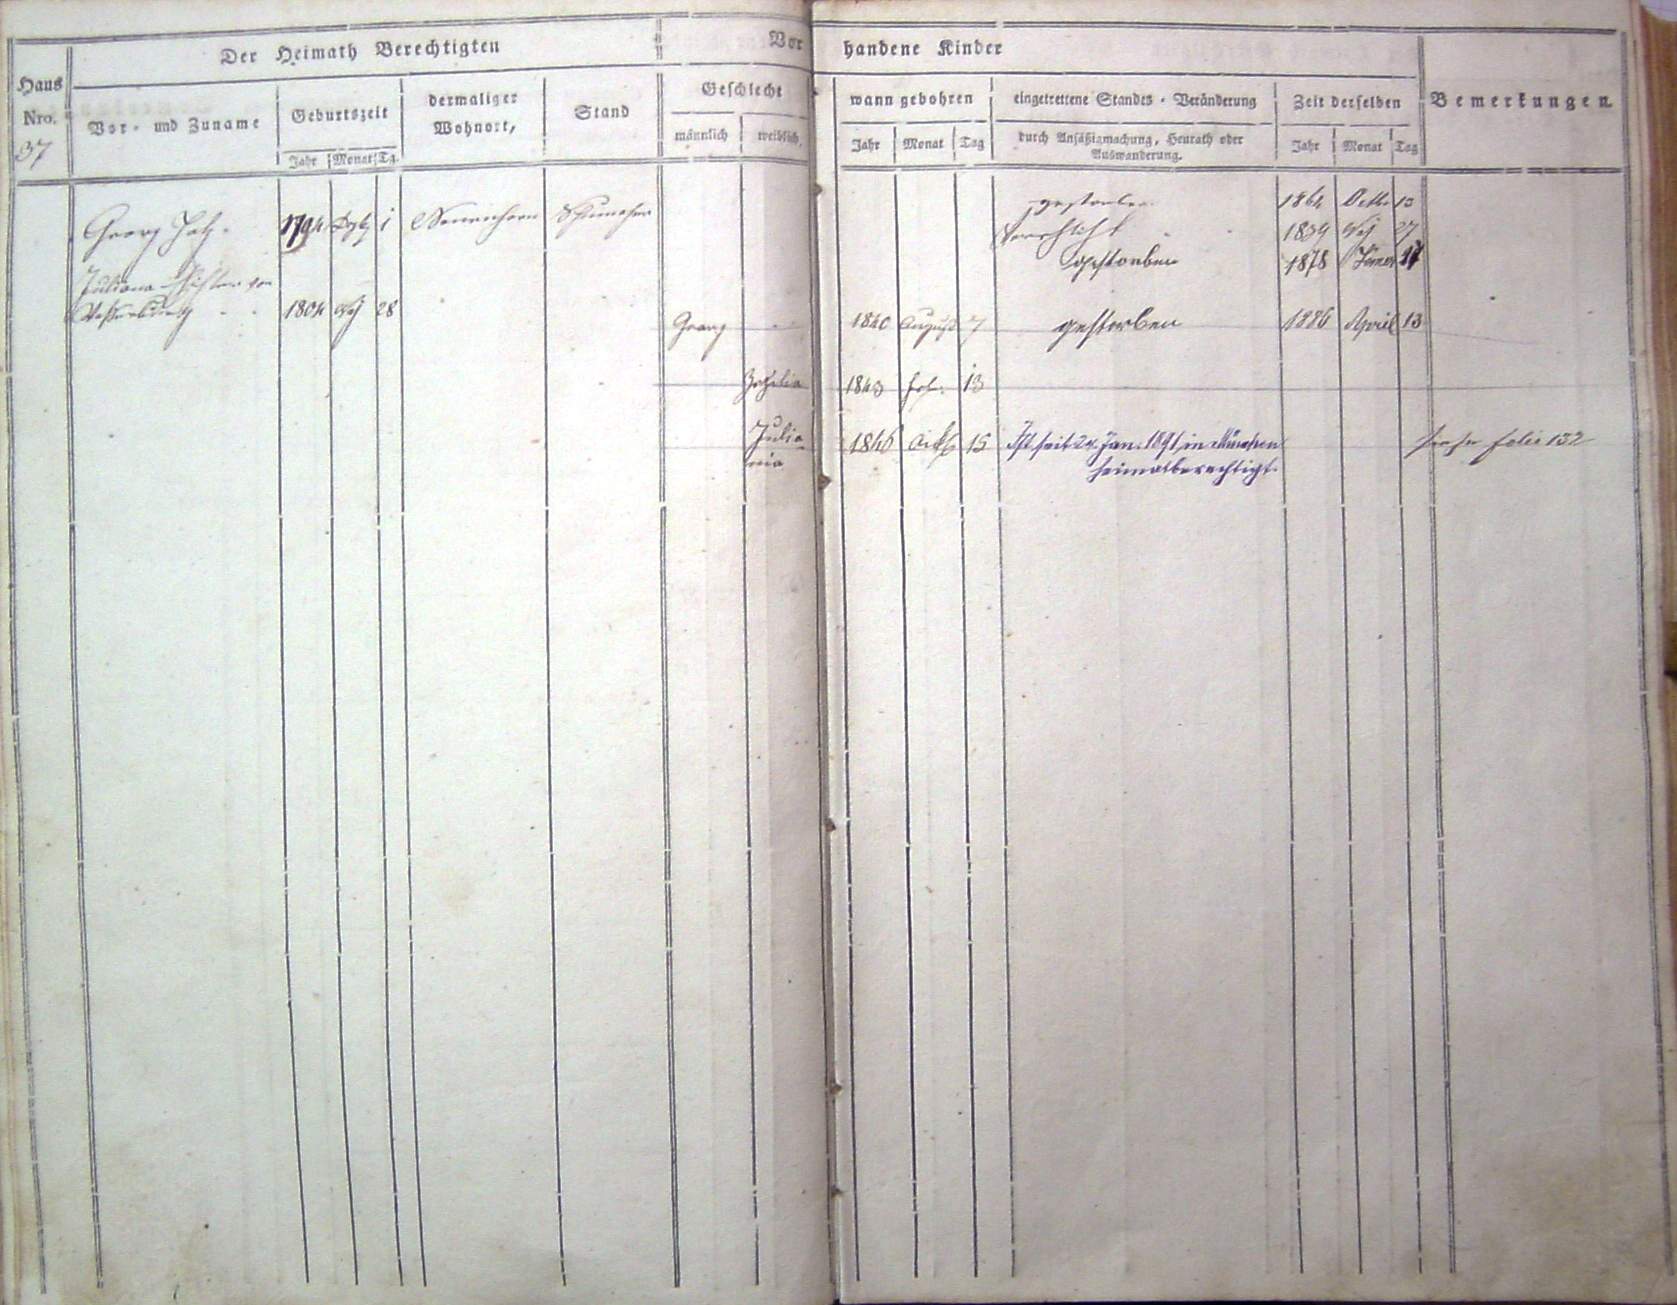 Der Heimath Berechtigten
Vorhandene Kinder
Haus Nro.
37
Vor- und Zuname
Geburtszeit
Jahr Monat Tg.
dermaliger Wohnort,
Stand
Geschlecht
männlich weiblich,
wann gebohren
Jahr Monat Tag
eingetrettene Standes-Veränderung
durch Ansäßigmachung, Heurath oder
Auswanderung.
Zeit derselben
Jahr Monat Tag
Bemerkungen.
Georg 1794 1
gestorben 1864 10
Verehlicht 1839 Mai 27
gestorben 1878 Jäner 17
Juliana von
1804 Mai 28
Georg 1840 August 7 gestorben 1886 April 13
1843 Feb. 13
Julia- 1846 15 Ist seit 24. Jan. 1891 in München siehe Folie 132
nna heimatberechtigt.